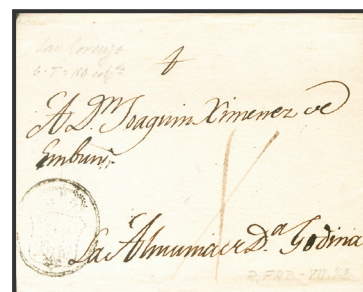 San Lorenzo
A D.n Joaquin Ximenez de
Embun
La Almunia de D.a Godina